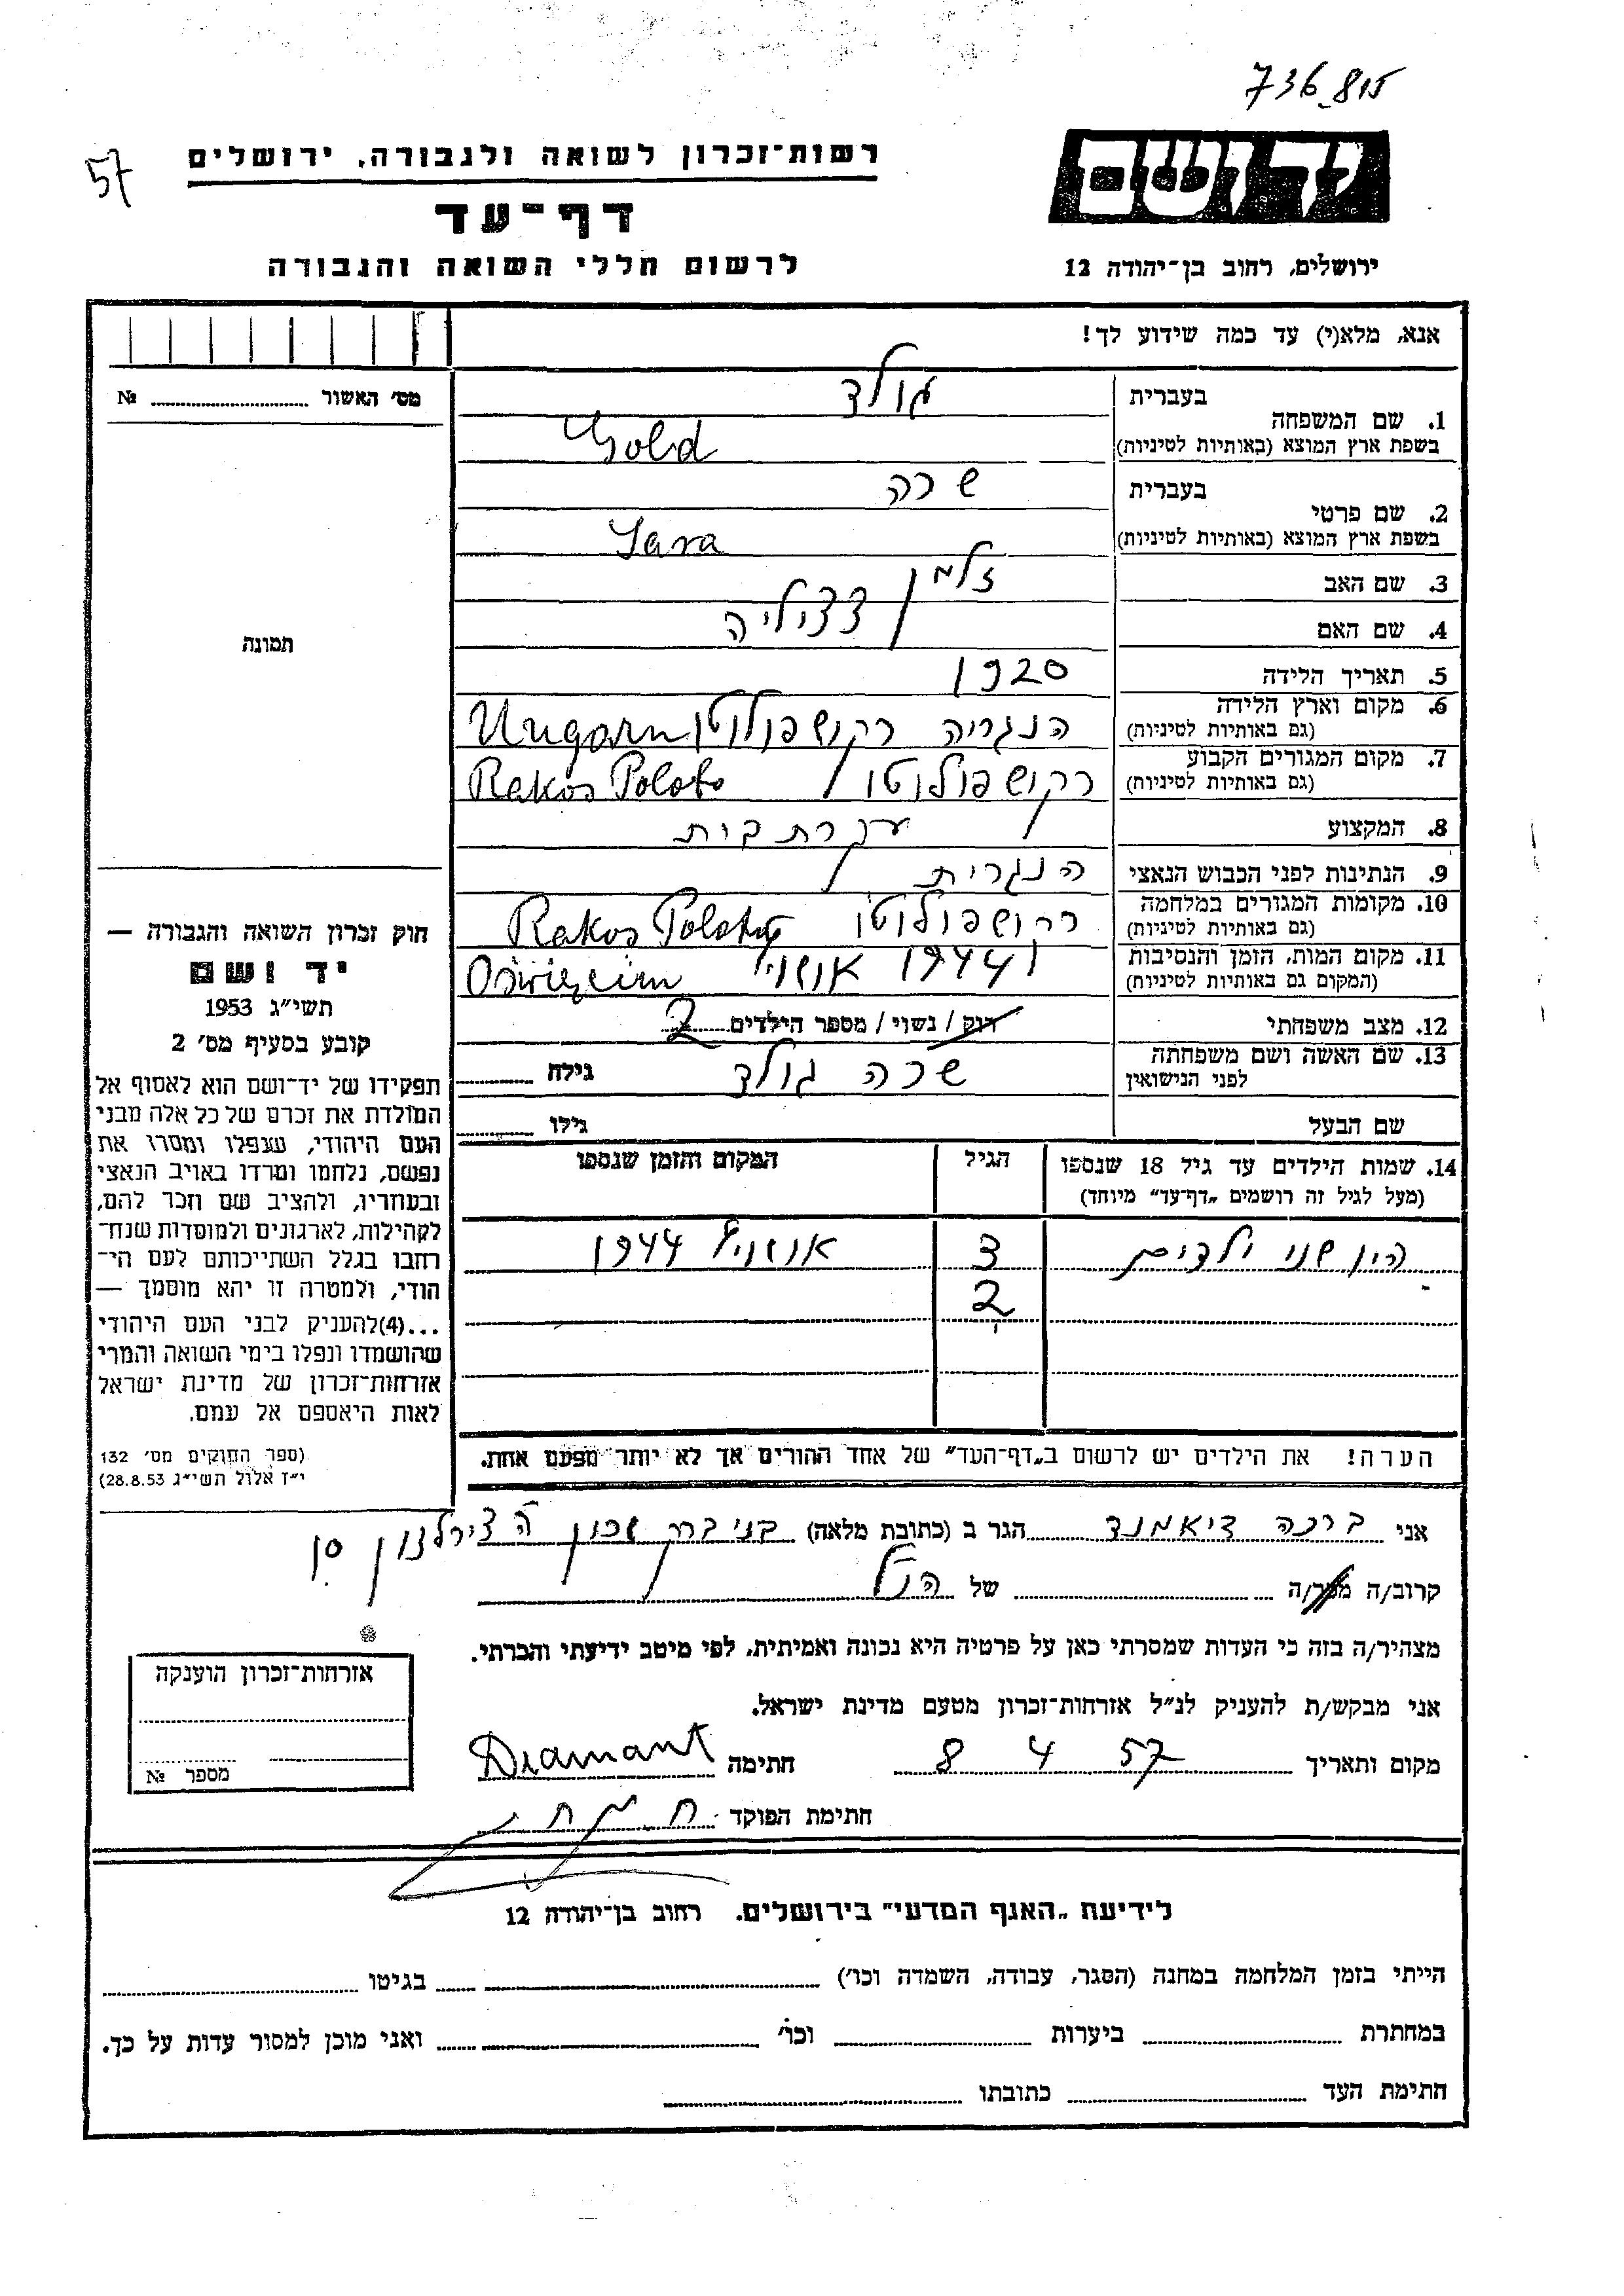 736_815
57
יד ושם
רשות־זכרון לשואה ולגבורה, ירושלים
דף־עד
לרשום חללי השואה והגבורה
ירושלים, רחוב בן־יהודה 12
אנא, מלא(י) עד כמה שידוע לך!
מס׳ האשור № 
בעברית גולד
1. שם המשפחה
בשפת ארץ המוצא (באותיות לטיניות) Gold
בעברית שרה
2. שם פרטי
בשפת ארץ המוצא (באותיות לטיניות) Sara
3. שם האב זלמן
4. שם האם צציליה
תמונה
5. תאריך הלידה 1920
6. מקום וארץ הלידה
(גם באותיות לטיניות) הנגריה רקושפולוטו Ungarn
7. מקום המגורים הקבוע
(גם באותיות לטיניות) רקושפולוטו Rakos Poloto
8. המקצוע עקרת בית
9. הנתינות לפני הכבוש הנאצי הנגרית
10. מקומות המגורים במלחמה
(גם באותיות לטיניות) Rakos
11. מקום המות, הזמן והנסיבות
(המקום גם באותיות לטיניות) 1944 Oświęcim
12. מצב משפחתי רוק / נשוי / מספר הילדים 2
13. שם האשה ושם משפחתה
לפני הנישואין שרה גולד גילה
שם הבעל גילו
14. שמות הילדים עד גיל 18 שנספו הגיל המקום והזמן שנספו
(מעל לגיל זה רושמים „דף־עד” מיוחד)
היו שני ילדים 3 1944
2
הערה! את הילדים יש לרשום ב„דף־העד” של אחד ההורים אך לא יותר מפעם אחת.
חוק זכרון השואה והגבורה —
יד ושם
תשי״ג 1953
קובע בסעיף מס׳ 2
תפקידו של יד־ושם הוא לאסוף אל
המולדת את זכרם של כל אלה מבני
העם היהודי, שנפלו ומסרו את
נפשם, נלחמו ומרדו באויב הנאצי
ובעוזריו, ולהציב שם וזכר להם,
לקהילות, לארגונים ולמוסדות שנח־
רבו בגלל השתייכותם לעם הי־
הודי, ולמטרה זו יהא מוסמך —
...(4) להעניק לבני העם היהודי
שהושמדו ונפלו בימי השואה והמרי
אזרחות־זכרון של מדינת ישראל
לאות היאספם אל עמם.
(ספר החוקים מס׳ 132
י״ז אלול תשי״ג 28.8.53)
אני ברכה דיאמנד הגר ב (כתובת מלאה) בני ברק שכון
קרוב/ה מכר/ה של הנ״ל
מצהיר/ה בזה כי העדות שמסרתי כאן על פרטיה היא נכונה ואמיתית, לפי מיטב ידיעתי והכרתי.
אני מבקש/ת להעניק לנ״ל אזרחות־זכרון מטעם מדינת ישראל.
מקום ותאריך 8 4 57 חתימה Diamant
חתימת הפוקד
אזרחות־זכרון הוענקה
מספר №
לידיעת „האגף המדעי” בירושלים. רחוב בן־יהודה 12
הייתי בזמן המלחמה במחנה (הסגר, עבודה, השמדה וכו׳) בגיטו
במחתרת ביערות וכו׳ ואני מוכן למסור עדות על כך.
חתימת העד כתובתו